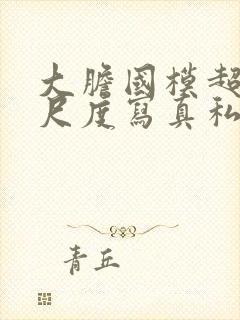 大膽國模超
尺度寫真私
青丘